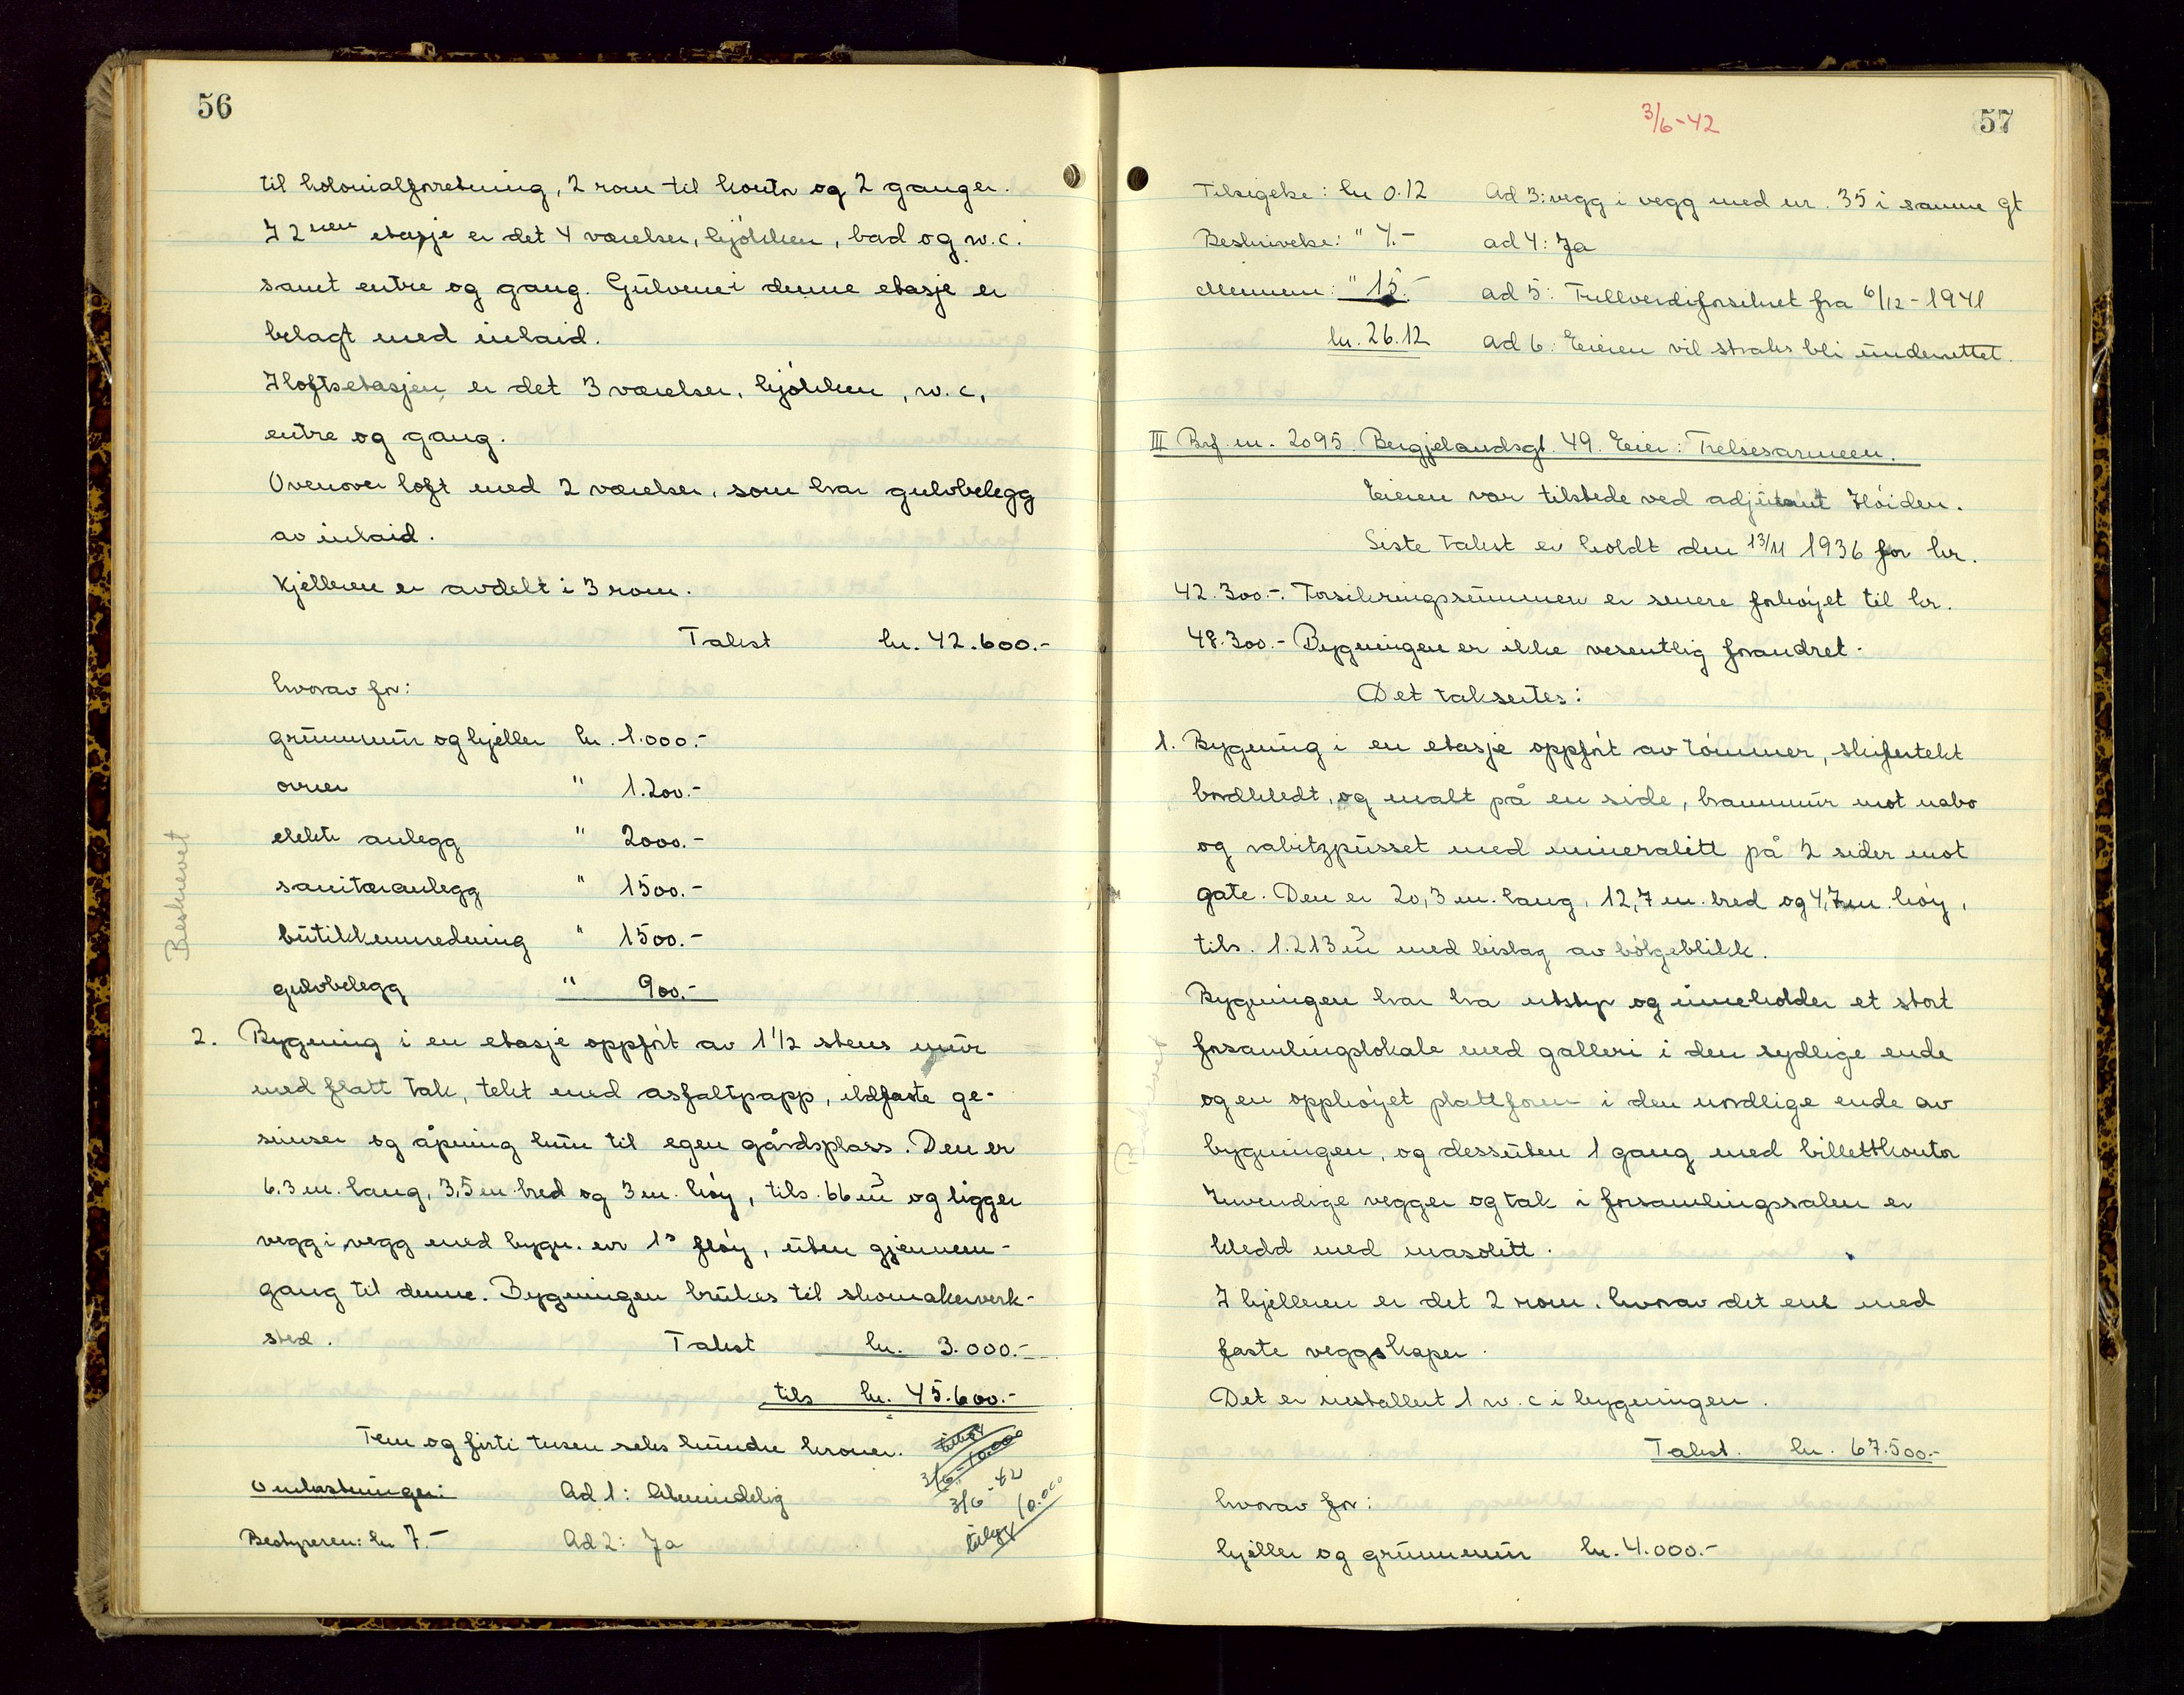 56
til kolonialforretning, 2 rom til kontor og 2 ganger.
I 2nen etasje er det 4 værelser, kjökken, bad og w.c.
samt entre og gang. Gulvene i denne etasje er
belagt med inlaid.
I loftsetasjen er det 3 værelser, kjökken, w.c,
entre og gang.
Ovenover loft med 2 værelser, som har gulvbelegg
av inlaid.
Kjelleren er avdelt i 3 rom.
Takst kr. 42.600.-
hvorav for:
grunnmur og kjeller kr. 1.000.-
ovner " 1.200.-
elektr anlegg " 2000.-
sanitæranlegg " 1500.-
butikkinnredning " 1500.-
gulvbelegg " 900.-
Beskrevet
2. Bygning i en etasje oppfört av 1 1/2 stens mur
med flatt tak, tekt med asfaltpapp, ildfaste ge-
simser og åpning kun til egen gårdsplass. Den er
6,3 m. lang, 3,5 m. bred og 3 m. höy, tils. 66 m3 og ligger
vegg i vegg med bygn. nr 1s flöy, uten gjennem-
gang til denne. Bygningen brukes til skomakerverk-
sted. Takst kr. 3.000.-
tils kr. 45.600.-
Fem og firti tusen seks hundre kroner.
tillegg
3/6 - 10.000
3/6 - 42
10.000
tillegg
Omkostninger: Ad 1: Almindelig
Bestyreren: kr 7.- Ad 2: Ja
3/6-42
57
Tilsigelse: kr 0.12 Ad 3: vegg i vegg med nr. 35 i samme gt
Beskrivelse: " 4.- ad 4: Ja
Mennene: " 15.- ad 5: Fullverdiforsikret fra 6/12-1941
kr. 26.12 ad 6: Eieren vil straks bli underrettet.
III Brf. nr. 2095. Bergjelandsgt. 49. Eier: Frelsesarmeen.
Eieren var tilstede ved adjutant Höiden.
Siste takst er holdt den 13/11 1936 for kr.
42.300.-. Forsikringssummen er senere forhöyet til kr.
48.300.- Bygningen er ikke vesentlig forandret.
Det takseres:
1. Bygning i en etasje oppfört av tömmer, skifertekt
bordkledt, og malt på en side, brannmur mot nabo
og rabitzpusset med mineralitt på 2 sider mot
gate. Den er 20,3 m. lang, 12,7 m. bred og 4,7 m höy,
tils. 1.213 m3 med bislag av bölgeblikk.
Bygningen har bra utstyr og inneholder et stort
forsamlingslokale med galleri i den sydlige ende
og en opphöyet plattform i den nordlige ende av
bygningen, og dessuten 1 gang med billettkontor
Innvendige vegger og tak i forsamlingssalen er
kledd med masolitt.
I kjelleren er det 2 rom, hvorav det ene med
faste veggskaper.
Det er installert 1 w.c i bygningen.
Takst. kr. 67.500.-
hvorav for:
kjeller og grunnmur kr. 4.000.-